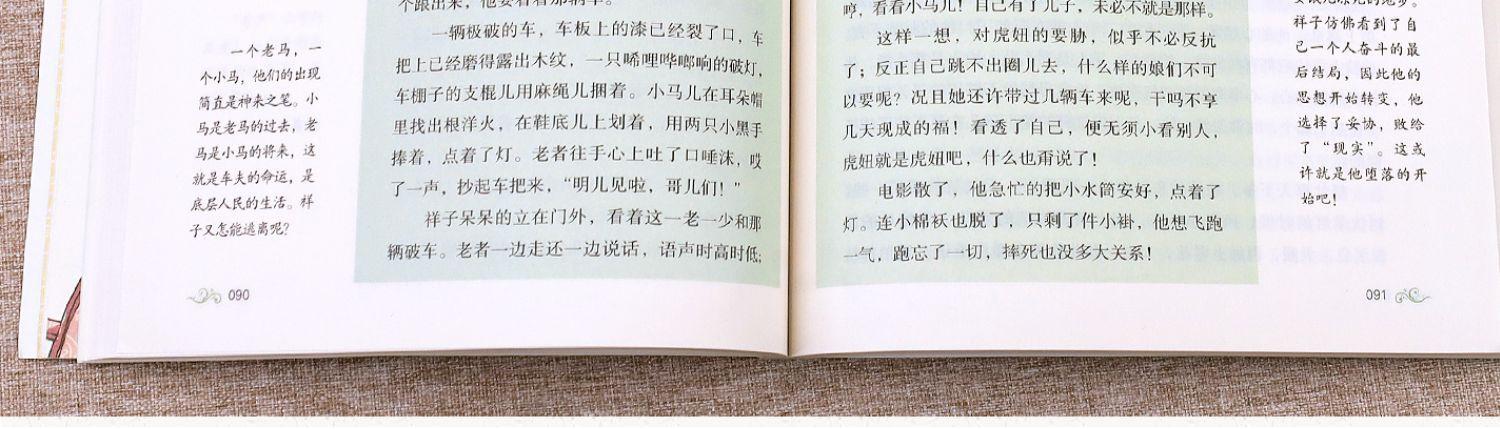 个跟出来，他要看看那辆车。
一辆极破的车，车板上的漆已经裂了口，车
把上已经磨得露出木纹，一只唏哩哗啷响的破灯，
车棚子的支棍儿用麻绳儿捆着。小马儿在耳朵帽
里找出根洋火，在鞋底儿上划着，用两只小黑手
捧着，点着了灯。老者往手心上吐了口唾沫，哎
了一声，抄起车把来，“明儿见啦，哥儿们！”
祥子呆呆的立在门外，看着这一老一少和那
辆破车。老者一边走还一边说话，语声时高时低；
一个老马，一
个小马，他们的出现
简直是神来之笔。小
马是老马的过去，老
马是小马的将来，这
就是车夫的命运，是
底层人民的生活。祥
子又怎能逃离呢？
090
哼，看看小马儿！自己有了儿子，未必不就是那样。
这样一想，对虎妞的要胁，似乎不必反抗
了；反正自己跳不出圈儿去，什么样的娘们不可
以要呢？况且她还许带过几辆车来呢，干吗不享
几天现成的福！看透了自己，便无须小看别人，
虎妞就是虎妞吧，什么也甭说了！
电影散了，他急忙的把小水筒安好，点着了
灯。连小棉袄也脱了，只剩了件小褂，他想飞跑
一气，跑忘了一切，摔死也没多大关系！
祥子仿佛看到了自
己一个人奋斗的最
后结局，因此他的
思想开始转变，他
选择了妥协，败给
了“现实”。这或
许就是他堕落的开
始吧！
091